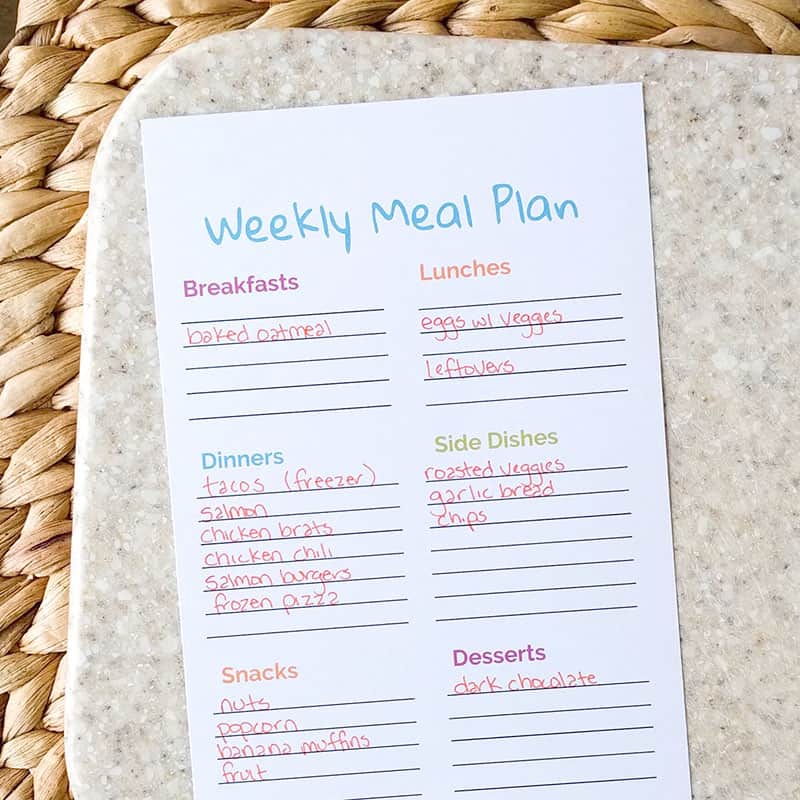 Weekly Meal Plan
Breakfasts
baked oatmeal
Lunches
eggs w/ veggies
leftovers
Dinners
tacos (freezer)
salmon
chicken brats
chicken chili
salmon burgers
frozen pizza
Side Dishes
roasted veggies
garlic bread
chips
Snacks
nuts
popcorn
banana muffins
fruit
Desserts
dark chocolate